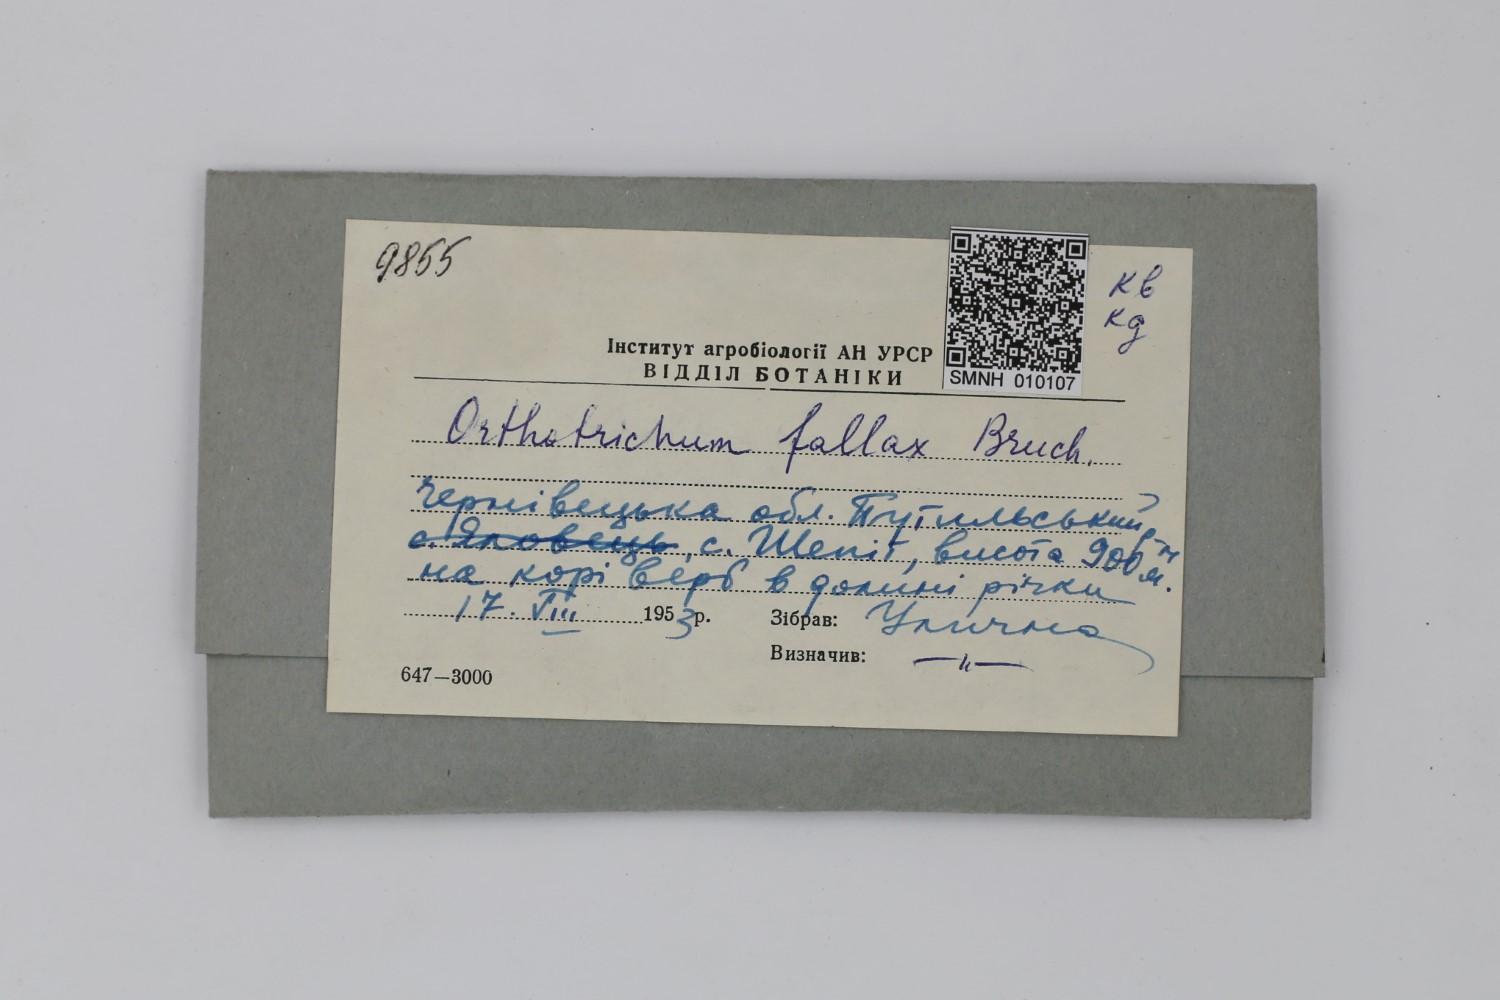 9855
SMNH 010107
кв
кд
Інститут агробіології АН УРСР
ВІДДІЛ БОТАНІКИ
Orthotrichum fallax Bruch.
Чернівецька обл. Путильський р-н
с. Яковець, с. Шепіт, висота 900 м.
на корі верб в долині річки
17. VIII 1953 р. Зібрав: Улична
Визначив: —"—
647—3000